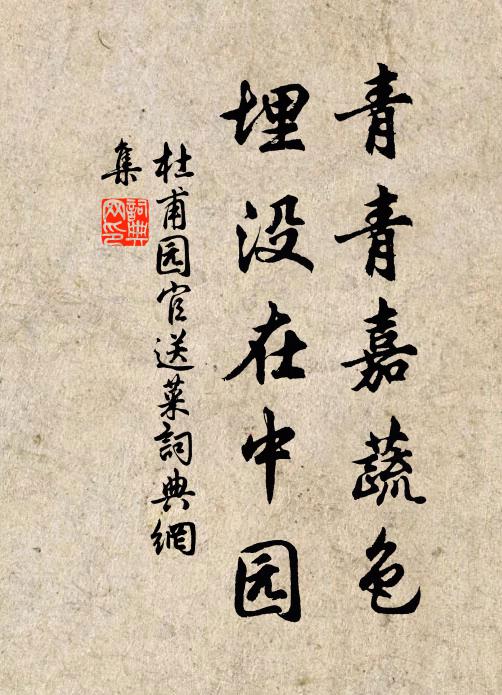 青青嘉蔬色
埋没在中园
杜甫园官送菜詞典網
集
詞典
网印